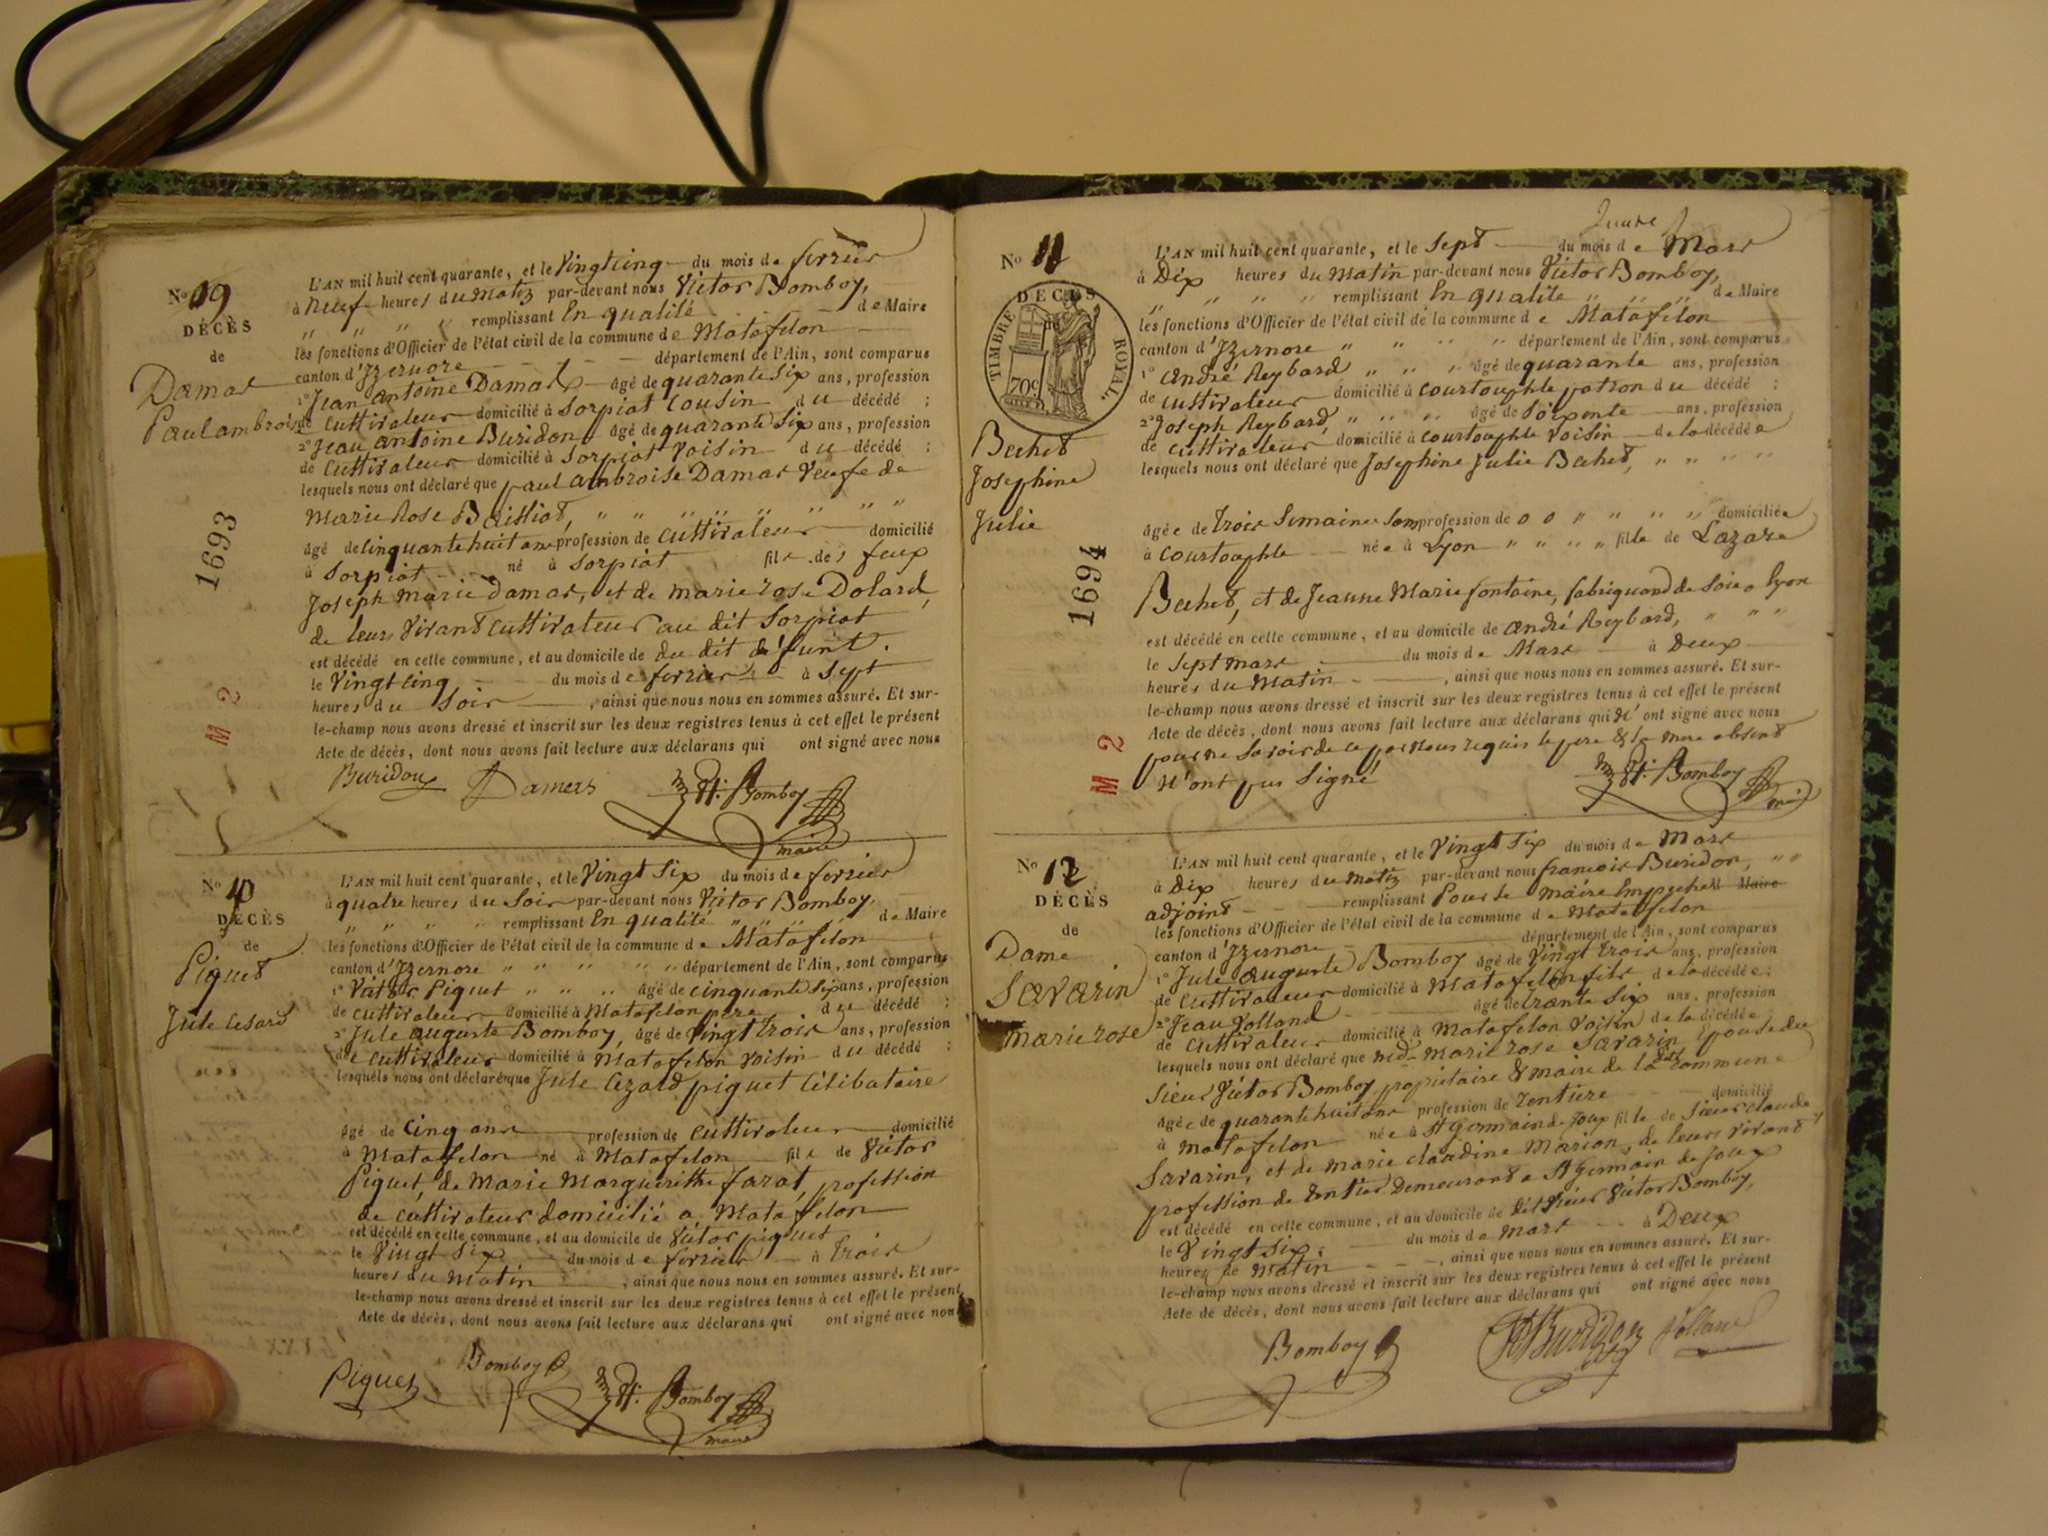 No 19
DÉCÈS
de
Damas
Paul ambroise
1693
M 2
L'AN mil huit cent quarante, et le Vingt cinq du mois de ferrier
à neuf heures du Matin par-devant nous Victor Bomboy,
" " " " remplissant En qualité de Maire
les fonctions d'Officier de l'état civil de la commune de Matafelon
canton d'Izernore département de l'Ain, sont comparus
1° Jean antoine Damas âgé de quarante Six ans, profession
de Cuttivateur domicilié à Sorpiat Cousin du décédé ;
2° Jean antoine Buridon, âgé de quarante Six ans, profession
de Cuttivateur domicilié à Sorpiat Voisin du décédé ;
lesquels nous ont déclaré que paul ambroise Damas Veufe de
Marie Rose " " " " " " " "
âgé de cinquante huit ans profession de cuttivateur domicilié
à Sorpiat né à Sorpiat fils des feux
Joseph marie Damas, et de marie rose Dolard,
de leurs Vivant cuttivateur au dit Sorpiat
est décédé en cette commune, et au domicile de du dit défunt.
le Vingt cinq du mois de ferrier à Sept
heures du Soir, ainsi que nous nous en sommes assuré. Et sur-
le-champ nous avons dressé et inscrit sur les deux registres tenus à cet effet le présent
Acte de décès, dont nous avons fait lecture aux déclarans qui ont signé avec nous
Buridon Damas Vt. Bomboy
maire
No 10
DÉCÈS
de
Piguet
Jule Cesard
L'AN mil huit cent quarante, et le Vingt Six du mois de ferrier
à quatre heures du Soir par-devant nous Victor Bomboy,
" " " " remplissant En qualité " " " " de Maire
les fonctions d'Officier de l'état civil de la commune de Matafelon
canton d'Izernore " " " " " département de l'Ain, sont comparus
1° Victor Piguet " " " âgé de cinquante six ans, profession
de cuttivateur domicilié à Matafelon pere du décédé ;
2° Jule auguste Bomboy, âgé de Vingt trois ans, profession
de cuttivateur domicilié à Matafelon Voisin du décédé ;
lesquels nous ont déclaré que Jule Cezard piguet Célibataire
âgé de Cinq ans profession de cuttivateur domicilié
à Matafelon né à Matafelon fils de Victor
Piguet, de Marie Marguerithe farat, profession
de cuttivateur domicilié a Matafelon
est décédé en cette commune, et au domicile de Victor piguet
le Vingt Six du mois de ferrier à trois
heures du Matin, ainsi que nous nous en sommes assuré. Et sur-
le-champ nous avons dressé et inscrit sur les deux registres tenus à cet effet le présent
Acte de décès, dont nous avons fait lecture aux déclarans qui ont signé avec nous
Piguet Bomboy Vt. Bomboy
maire
No 11
DÉCÈS
TIMBRE ROYAL.
70c
Bechet
Josephine
Julie
1694
M 2
L'AN mil huit cent quarante, et le Sept du mois de Mars
à Dix heures du Matin par-devant nous Victor Bomboy,
" " " " remplissant En qualité " " " de Maire
les fonctions d'Officier de l'état civil de la commune de Matafelon
canton d'Izernore " " " " département de l'Ain, sont comparus
1° André Reybard " " " âgé de quarante ans, profession
de cuttivateur domicilié à Courtouphle patron du décédé ;
2° Joseph Reybard, " " " âgé de Soixante ans, profession
de cuttivateur domicilié à Courtouphle Voisin de la décédée
lesquels nous ont déclaré que Josephine Julie Bechet, " " " "
âgée de trois Semaines Sans profession de o o " " " " domiciliée
à Courtouphle née à Lyon " " " " fille de Lazare
Bechet, et de Jeanne Marie fontaine, fabriquand de Soie a Lyon
est décédé en cette commune, et au domicile de André Reybard, " " "
le Sept mars du mois de Mars à Deux
heures du Matin, ainsi que nous nous en sommes assuré. Et sur-
le-champ nous avons dressé et inscrit sur les deux registres tenus à cet effet le présent
Acte de décès, dont nous avons fait lecture aux déclarans qui n'ont signé avec nous
pour ne Savoir de ce par nous requis le pere & la mere absent
N'ont pas Signé Vt. Bomboy
No 12
DÉCÈS
de
Dame
Savarin
marie rose
L'AN mil huit cent quarante, et le Vingt Six du mois de Mars
à Dix heures du Matin par-devant nous francois Buridon, " "
adjoint remplissant Pour le maire Empeché Maire
les fonctions d'Officier de l'état civil de la commune de Matafelon
canton d'Izernore département de l'Ain, sont comparus
1° Jule auguste Bomboy âgé de Vingt trois ans, profession
de cuttivateur domicilié à Matafelon fils de la décédée ;
2° Jean Volland âgé de trante Six ans, profession
de Cuttivateur domicilié à Matafelon Voisin de la décédée
lesquels nous ont déclaré que marie rose Savarin Epouse du
Sieur Victor Bomboy propietaire & maire de la dite commune
âgée de quarante huit ans profession de rentiere domicilié
à matafelon née à St Germain de Joux fille de Sieur claude
Savarin, et de marie claudine Marion, de leurs Vivant
profession de rentier Demeurant a St Germain de Joux
est décédé en cette commune, et au domicile de dit Sieur Victor Bomboy,
le Vingt Six du mois de mars à Deux
heures de matin, ainsi que nous nous en sommes assuré. Et sur-
le-champ nous avons dressé et inscrit sur les deux registres tenus à cet effet le présent
Acte de décès, dont nous avons fait lecture aux déclarans qui ont signé avec nous
Bomboy Buridon Volland